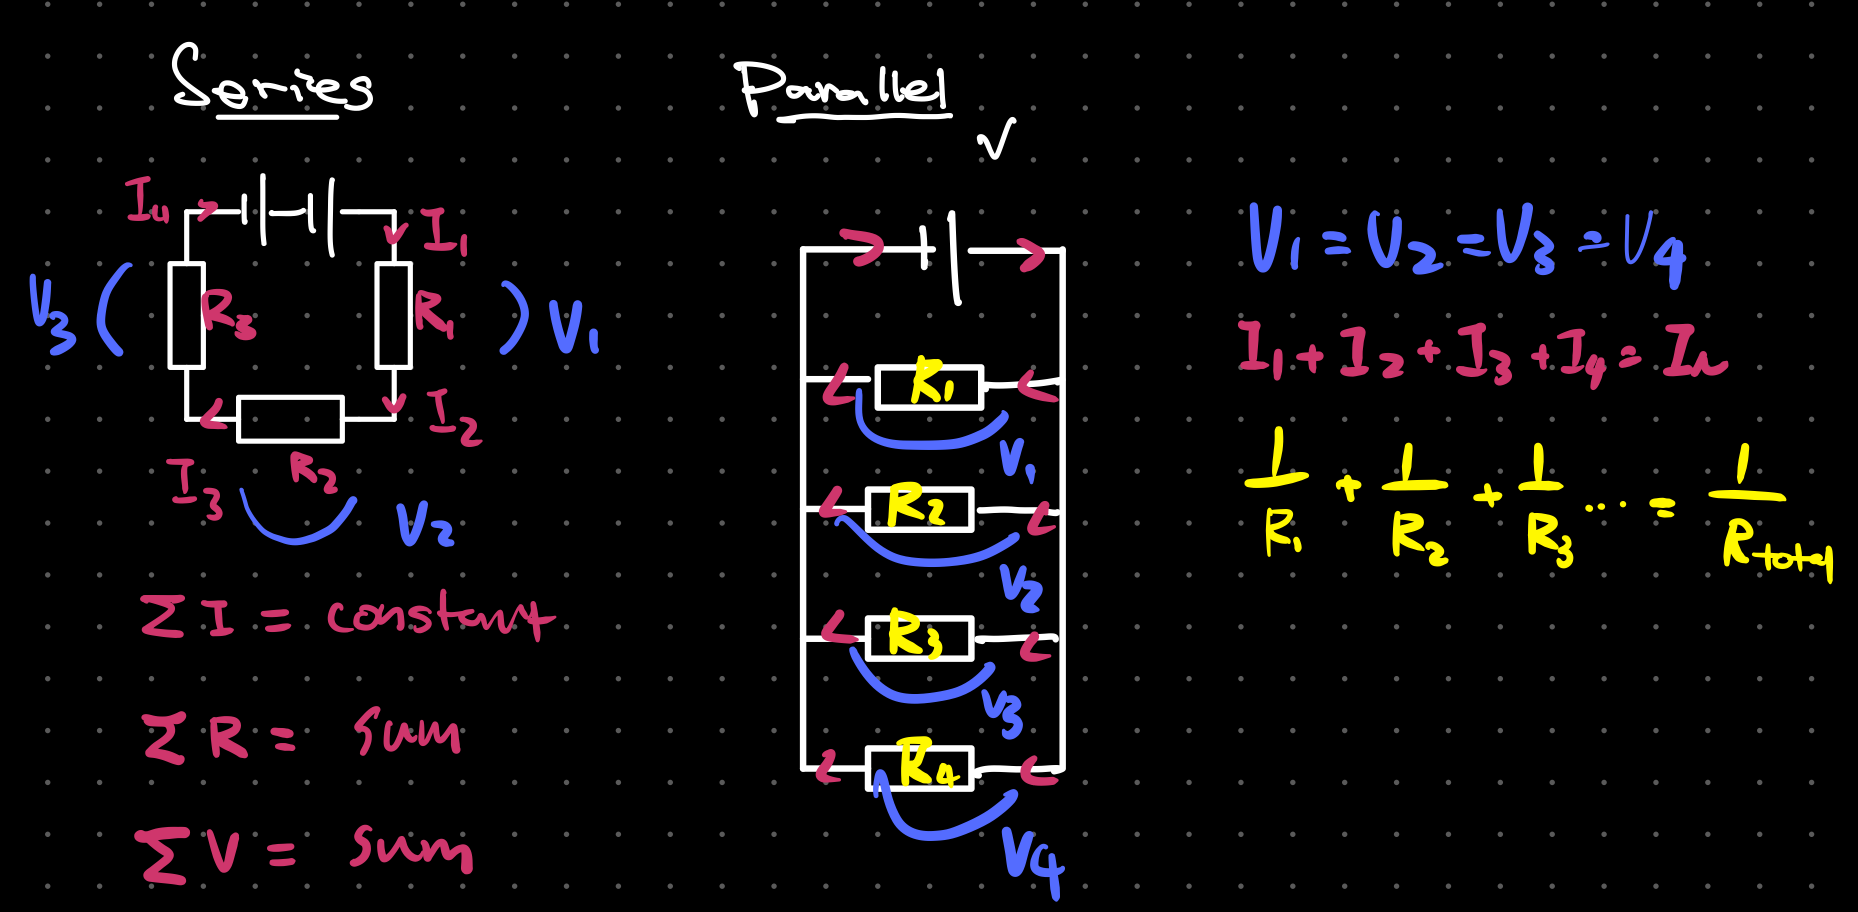 Series
I₄
I₁
V₃
R₃
R₁
V₁
I₂
I₃
R₂
V₂
ΣI = constant
ΣR = sum
ΣV = sum
Parallel
V
R₁
V₁
R₂
V₂
R₃
V₃
R₄
V₄
V₁ = V₂ = V₃ = V₄
I₁ + I₂ + I₃ + I₄ = Iₙ
1/R₁ + 1/R₂ + 1/R₃ ... = 1/R total